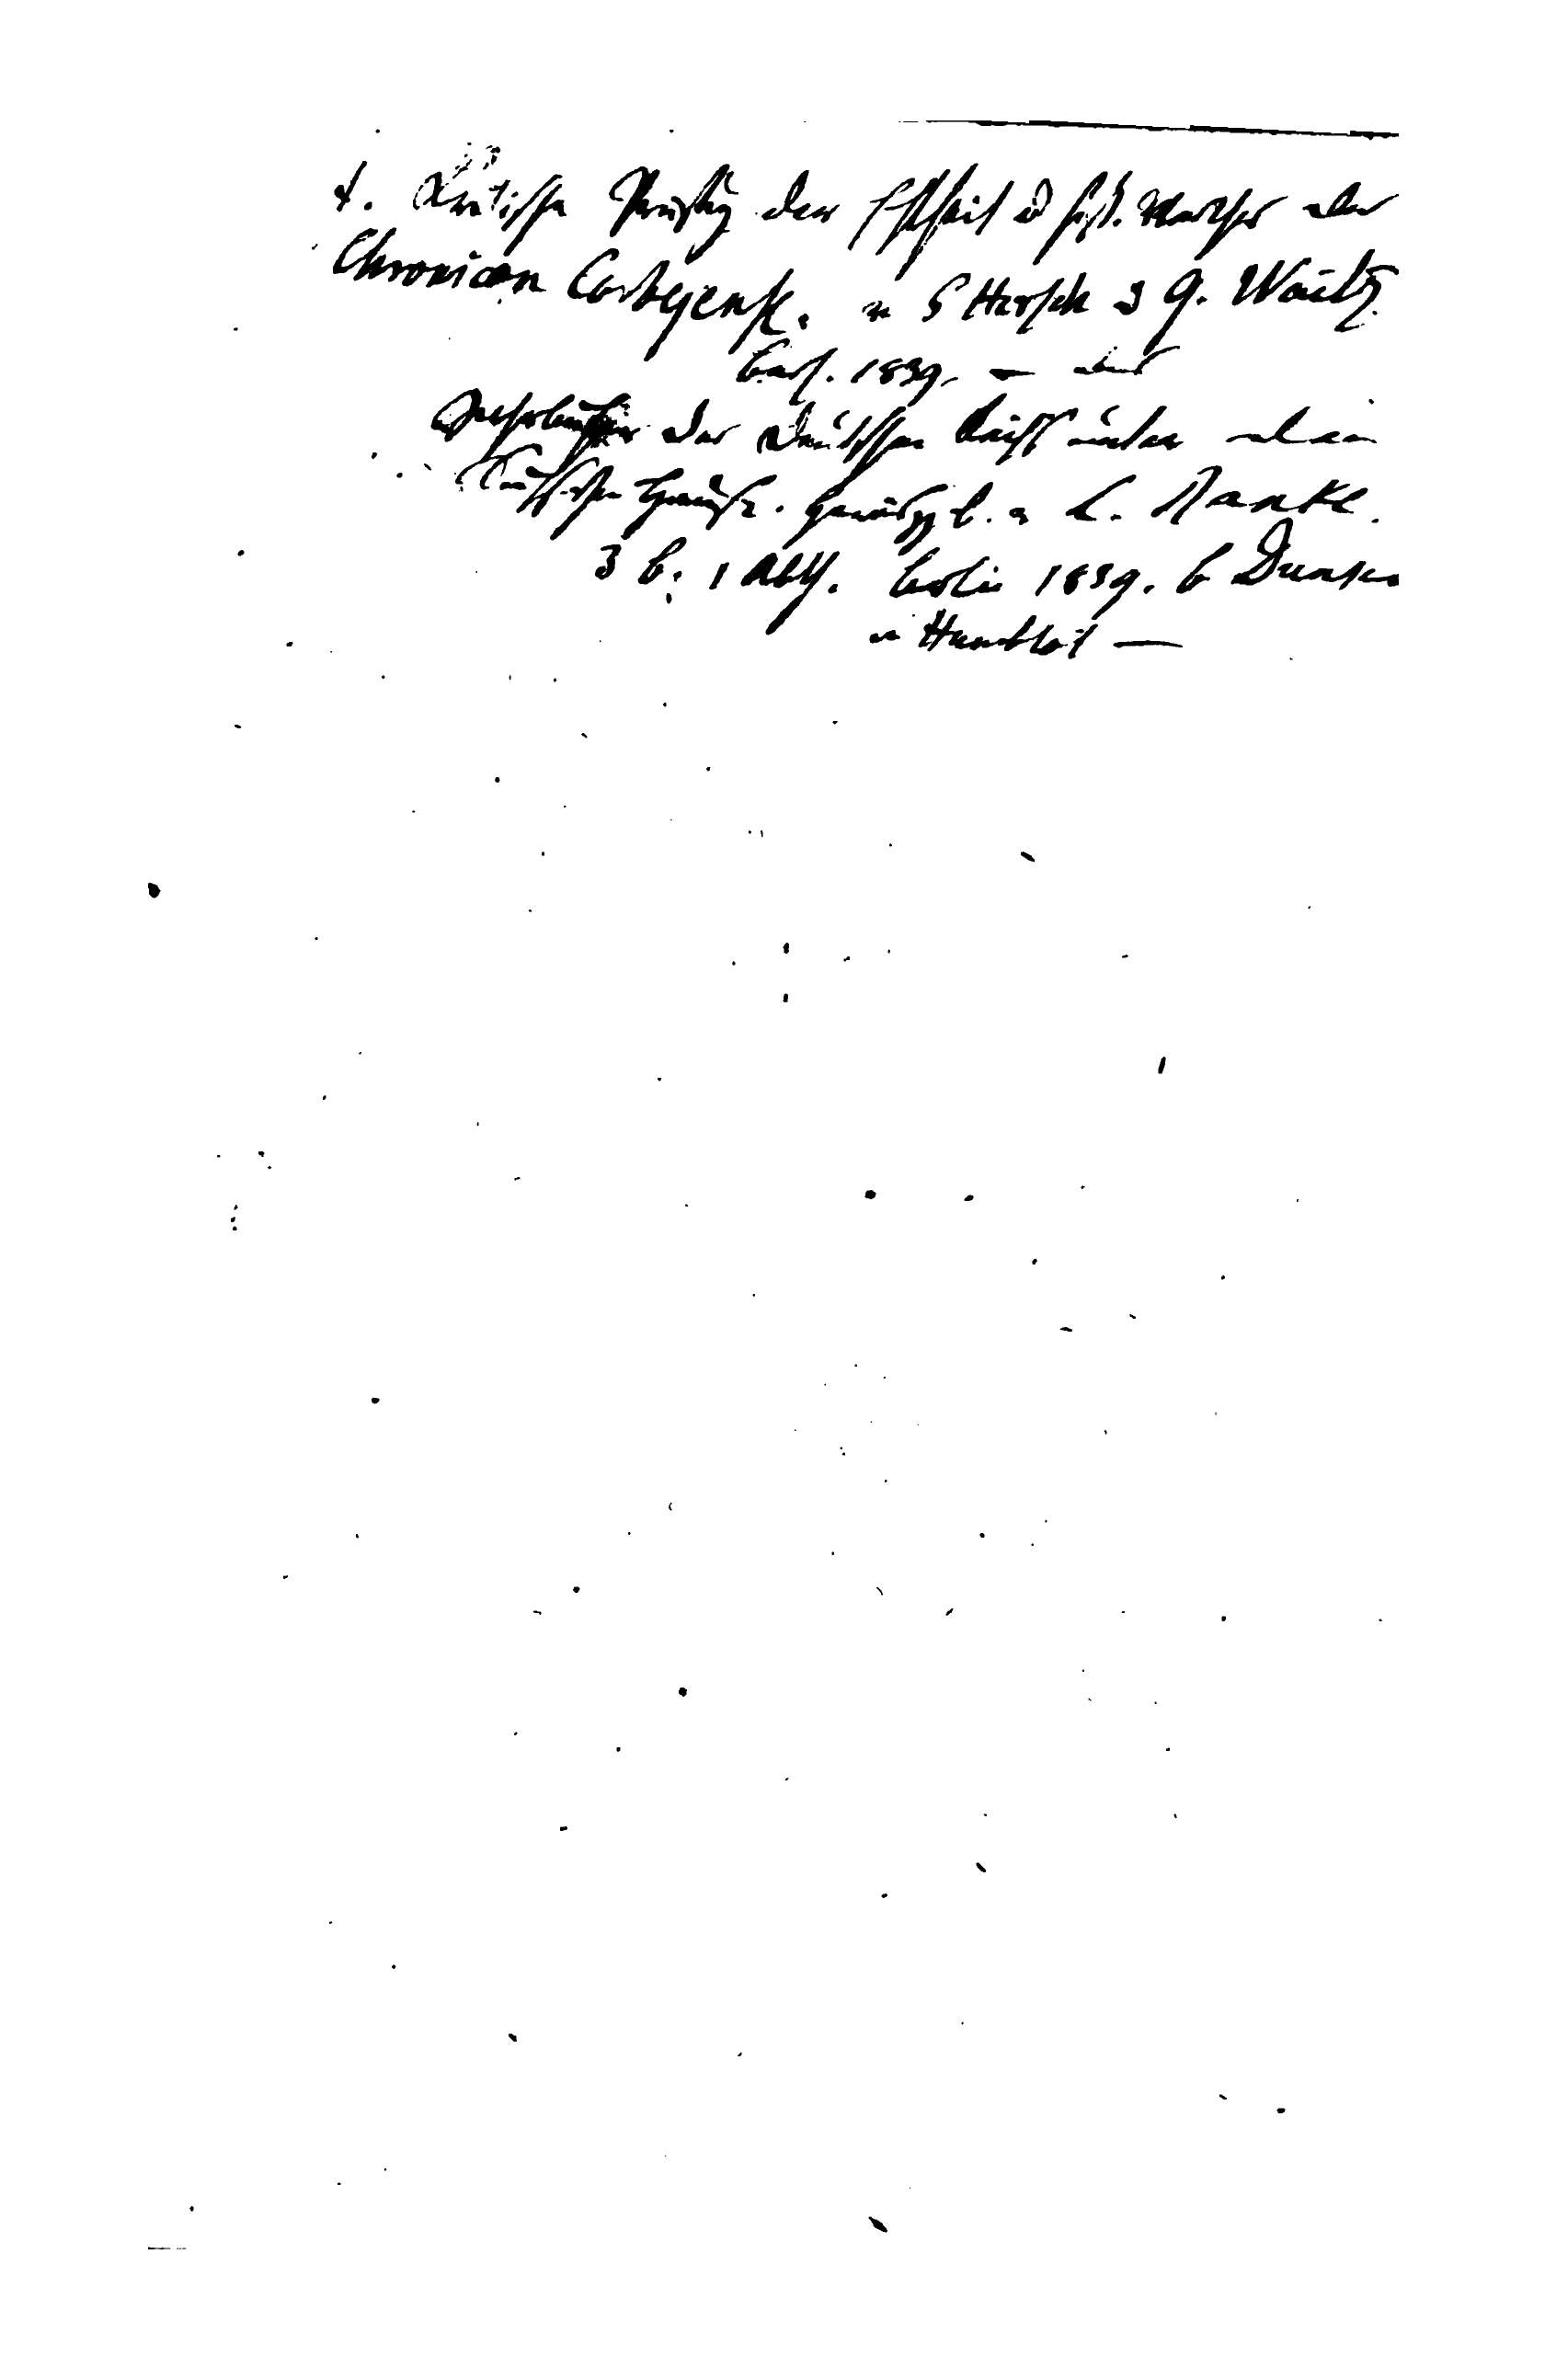 d. Kritische Prüfung der Echtheit u hist. Werthes der
Chronicon Corbejense. v S Hirsch u G. Waitz.
Berl. 1839. — und
Jahrbücher des Deutschen Reichs unter dem
Sächsischen Hause. herausg b. v L. Ranke.
3 b. 1 Abth. Berlin 1839. b Duncker
u Humblot —